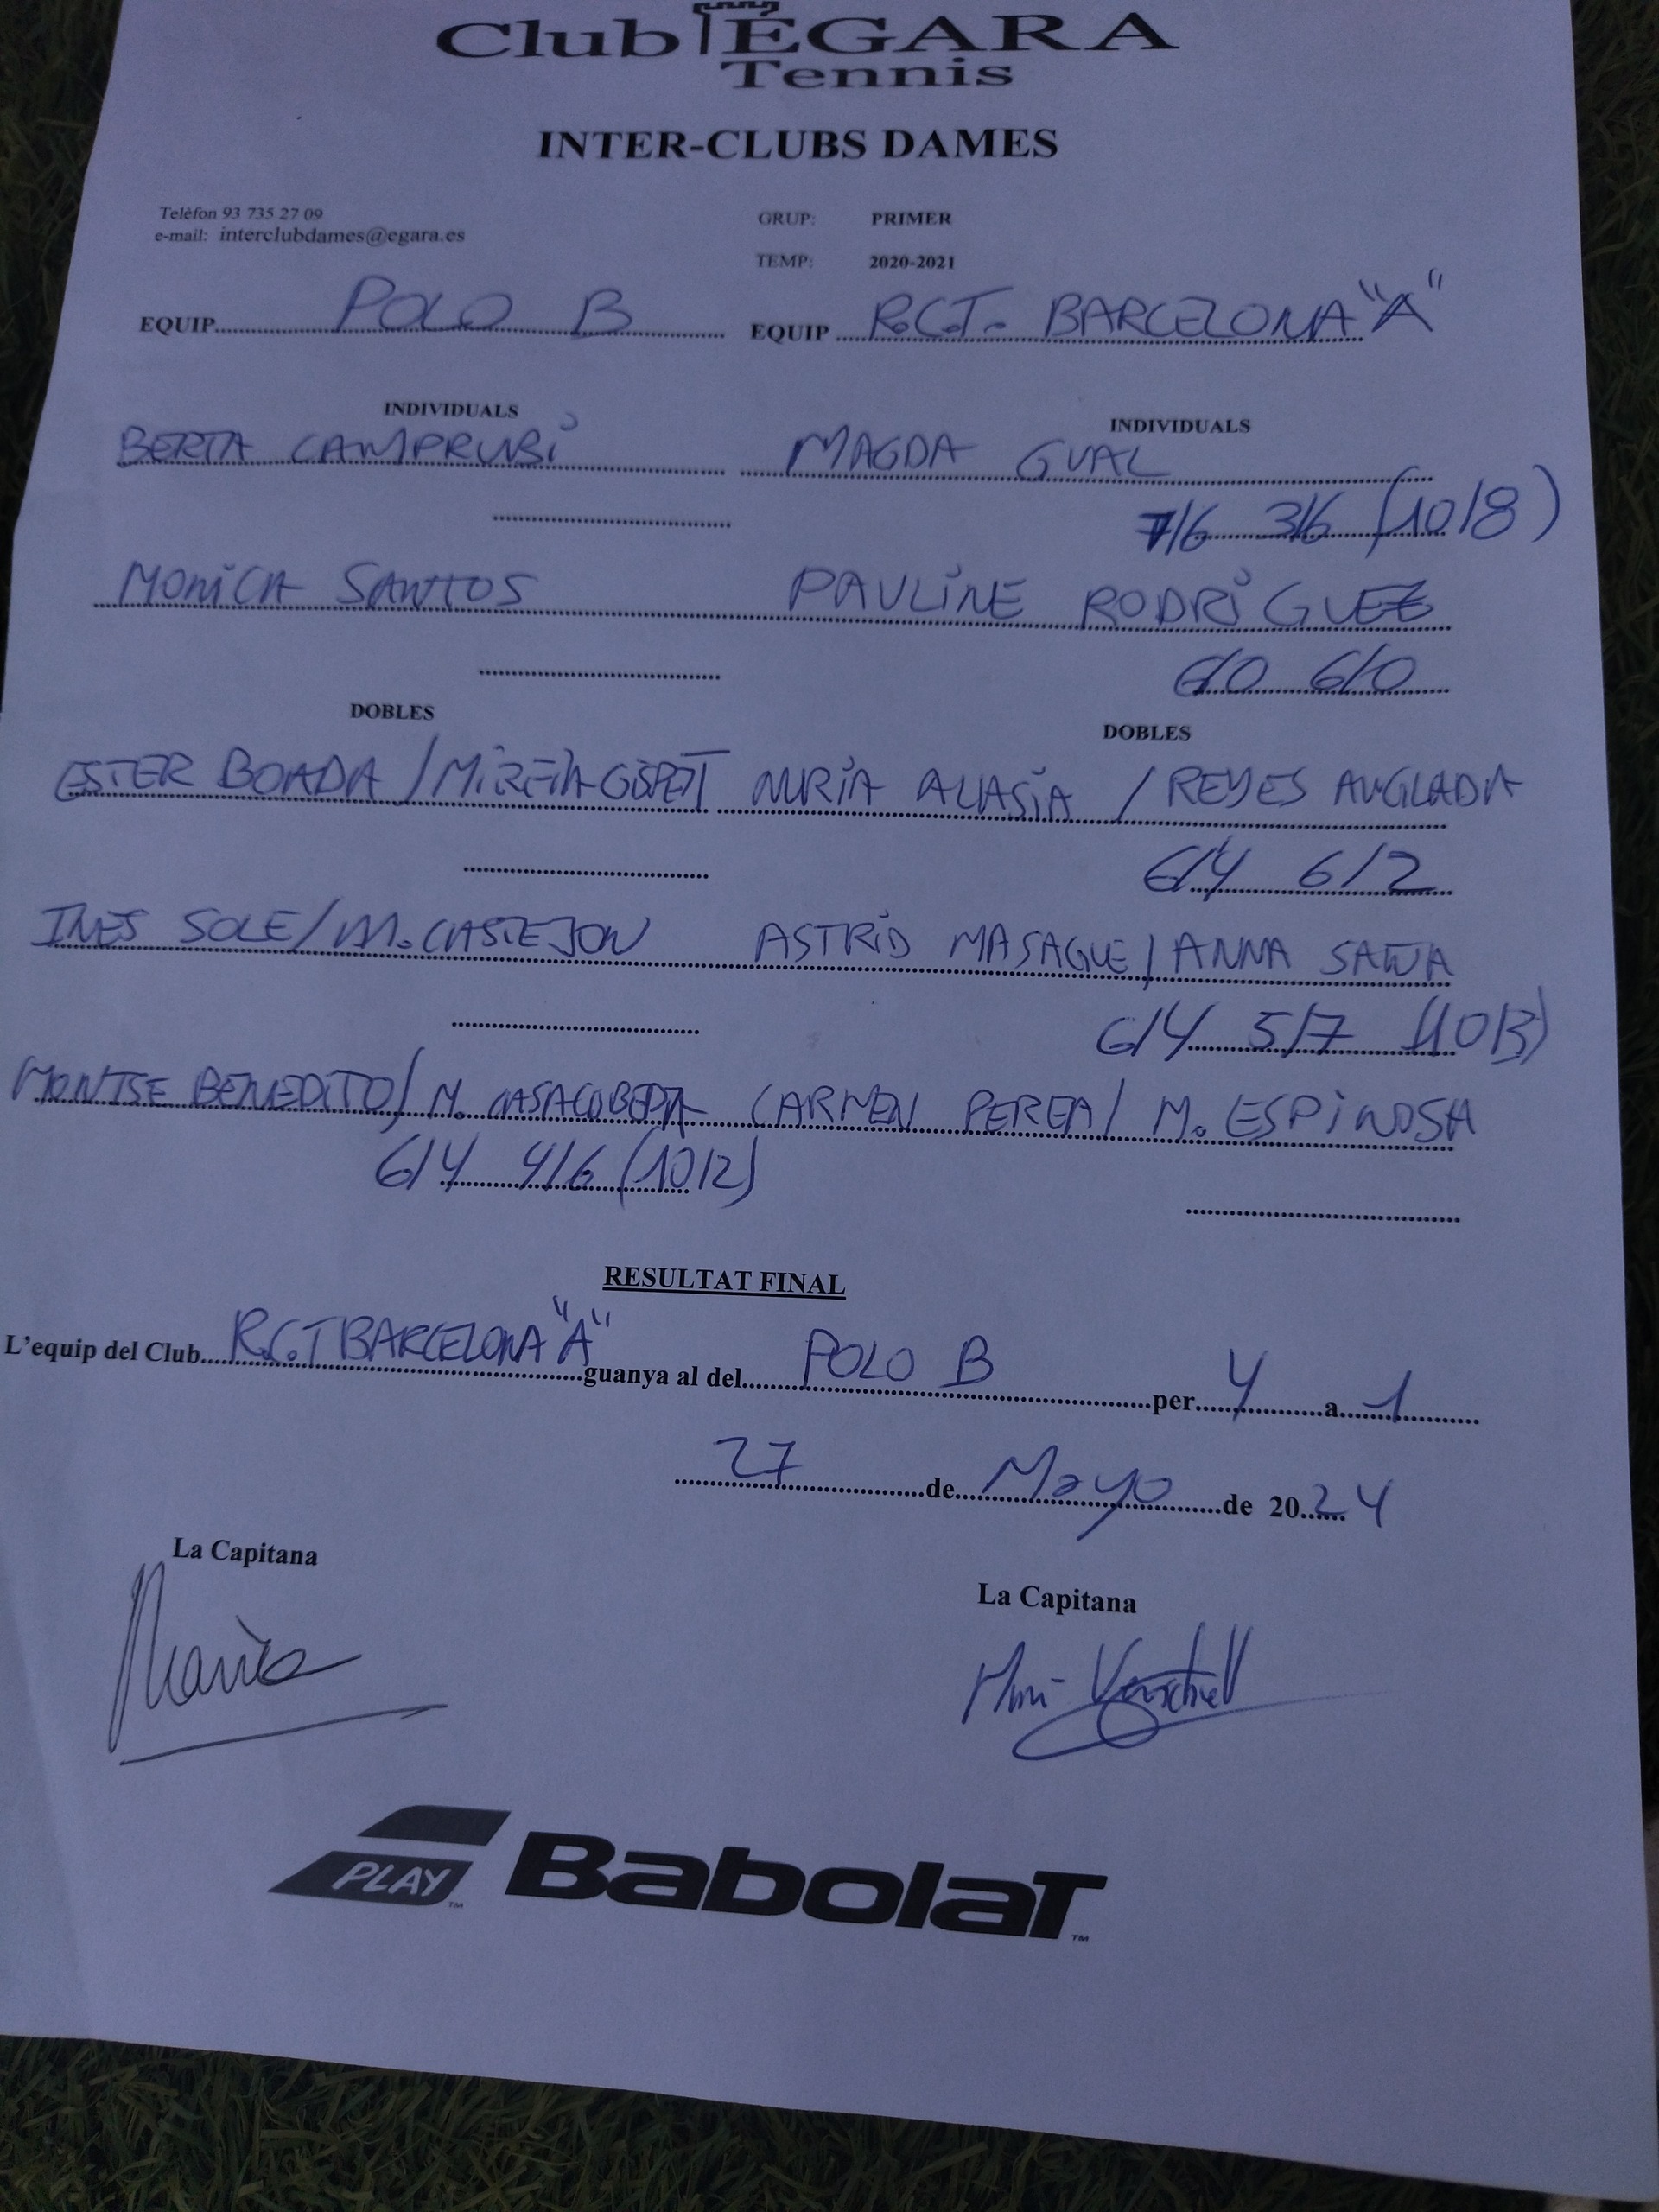 Club ÉGARA
Tennis
INTER-CLUBS DAMES
Telèfon 93 735 27 09
e-mail: interclubdames@egara.es
GRUP: PRIMER
TEMP: 2020-2021
EQUIP POLO B
EQUIP R.C.T. BARCELONA "A"
INDIVIDUALS
INDIVIDUALS
BERTA CAMPRUBÍ
MAGDA GUAL
7/6 3/6 (10/8)
MONICA SANTOS
PAULINE RODRÍGUEZ
6/0 6/0
DOBLES
DOBLES
ESTER BOADA / MIREIA GISPERT
NURIA ALIASIA / REYES ANGLADA
6/4 6/2
INES SOLE / M. CASTEJON
ASTRID MASAGUE / ANNA
6/4 5/7 (10/3)
MONTSE BENEDITO / M. CASACUBERTA
CARMEN PEREA / M. ESPINOSA
6/4 4/6 (10/2)
RESULTAT FINAL
L'equip del Club R.C.T BARCELONA "A" guanya al del POLO B per 4 a 1
27 de Mayo de 2024
La Capitana
La Capitana
PLAY™ BabolaT™